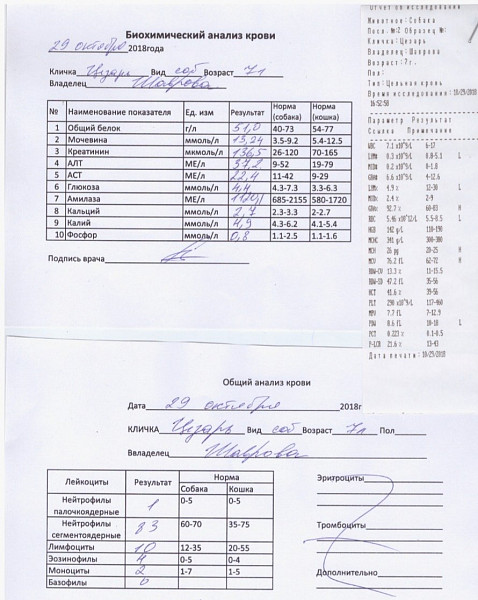 Биохимический анализ крови
29 октября 2018года
Кличка Цезарь Вид соб Возраст 7л
Владелец Шаврова
№ Наименование показателя Ед. изм Результат Норма (собака) Норма (кошка)
1 Общий белок г/л 51,0 40-73 54-77
2 Мочевина ммоль/л 13,24 3.5-9.2 5.4-12.5
3 Креатинин мкмоль/л 136,5 26-120 70-165
4 АЛТ МЕ/л 37,2 9-52 19-79
5 АСТ МЕ/л 22,4 11-42 9-29
6 Глюкоза ммоль/л 4,4 4.3-7.3 3.3-6.3
7 Амилаза МЕ/л 685-2155 580-1720
8 Кальций ммоль/л 2,7 2.3-3.3 2-2.7
9 Калий ммоль/л 4,9 4.3-6.2 4.1-5.4
10 Фосфор ммоль/л 0,8 1.1-2.5 1.1-1.6
Подпись врача
Отчет об исследовании
Животное: Собака
Посл. №:2 Образец №:
Кличка: Цезарь
Владелец: Шаврова
Возраст: 7г.
Пол:
Тип: Цельная кровь
Время исследования: 10/29/2018
16:52:50
Параметр Результат
Ссылка Примечание
WBC 7.1 x10^9/L 6-17
LYM# 0.3 x10^9/L 0.8-5.1 L
MID# 0.2 x10^9/L 0-1.8
GRAN# 6.6 x10^9/L 4-12.6
LYM% 4.9 % 12-30 L
MID% 2.4 % 2-9
GRAN% 92.7 % 60-83 H
RBC 5.46 x10^12/L 5.5-8.5 L
HGB 142 g/L 110-190
MCHC 341 g/L 300-380
MCH 26 pg 20-25 H
MCV 76.2 fL 62-72 H
RDW-CV 13.3 % 11-15.5
RDW-SD 47.2 fL 35-56
HCT 41.6 % 39-56
PLT 290 x10^9/L 117-460
MPV 7.7 fL 7-12.9
PDW 8.6 fL 10-18 L
PCT 0.223 % 0.1-0.5
P-LCR 21.6 % 13-43
Дата печати: 10/29/2018
Общий анализ крови
Дата 29 октября 2018г
КЛИЧКА Цезарь Вид соб Возраст 7л Пол
Ввладелец Шаврова
Лейкоциты Результат Норма
Собака Кошка
Нейтрофилы палочкоядерные 1 0-5 0-5
Нейтрофилы сегментоядерные 83 60-70 35-75
Лимфоциты 10 12-35 20-55
Эозинофилы 4 0-5 0-4
Моноциты 2 1-7 1-5
Базофилы 0
Эритроциты
Тромбоциты
Дополнительно